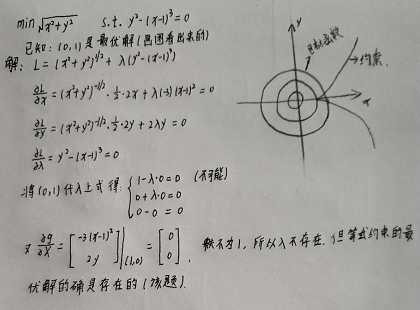 min √(x²+y²)   s.t. y²-(x-1)³=0
已知: (0,1) 是最优解 (画图看出来的)
解: L = (x²+y²)^(1/2) + λ(y²-(x-1)³)
∂L/∂x = (x²+y²)^(-1/2)·1/2·2x + λ(-3)(x-1)² = 0
∂L/∂y = (x²+y²)^(-1/2)·1/2·2y + 2λy = 0
∂L/∂λ = y²-(x-1)³ = 0
将(0,1)代入上式得: { 1-λ·0=0 (不可能)
0+λ·0=0
0-0 = 0
又 ∂g/∂X = [-3(x-1)² 2y] |(1,0) = [0 0] , 秩不为1, 所以λ不存在. 但等式约束的最
优解的确是存在的 (该题).
y
目标函数
约束
x